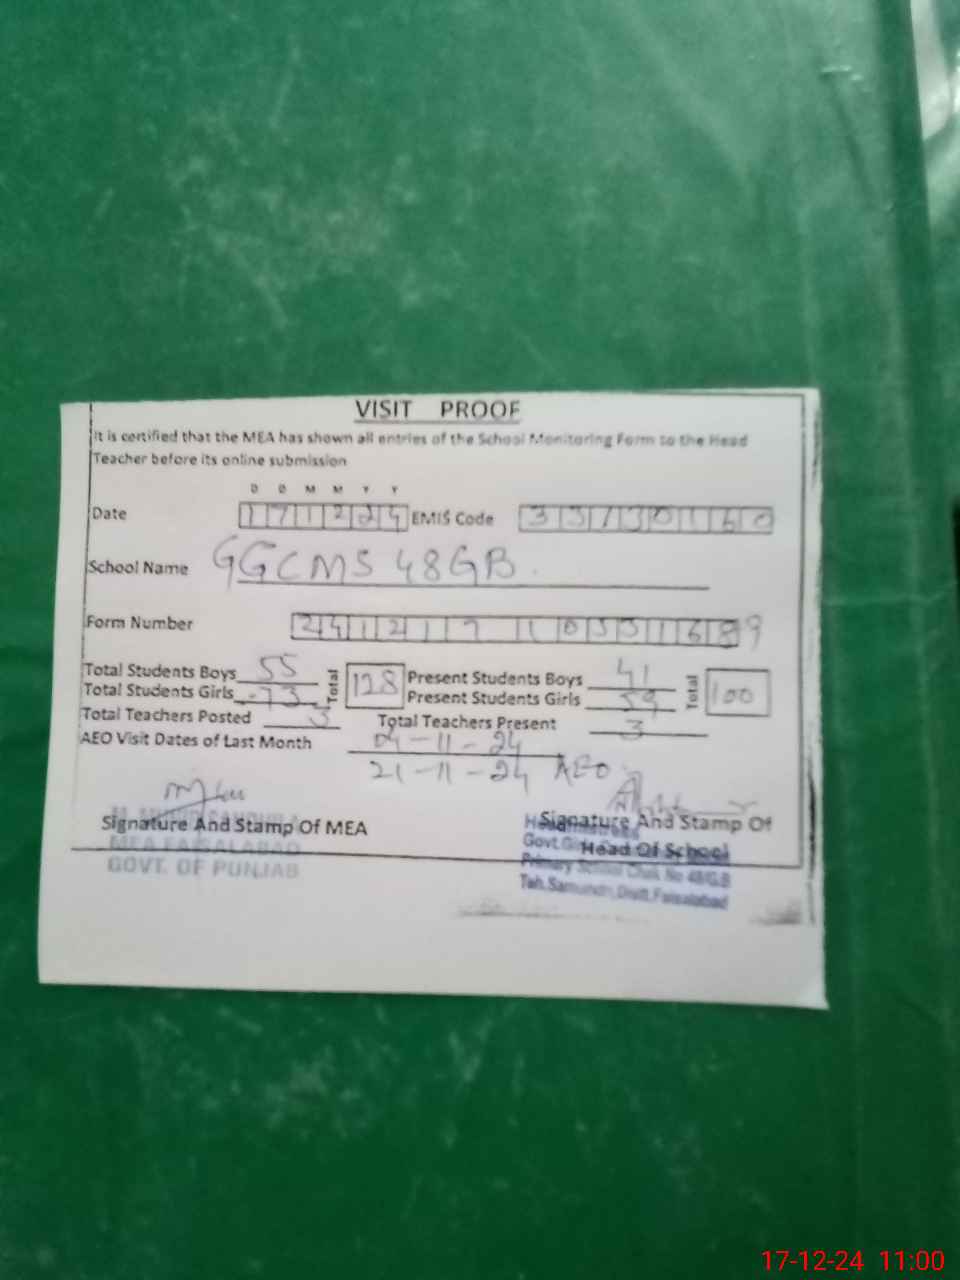 VISIT PROOF
It is certified that the MEA has shown all entries of the School Monitoring Form to the Head
Teacher before its online submission
D D M M Y Y
Date 171224 EMIS Code 33130160
School Name GGCMS 48GB.
Form Number
Total Students Boys 55 Total 128 Present Students Boys 41 Total 100
Total Students Girls 73 Present Students Girls 59
Total Teachers Posted 3 Total Teachers Present 3
AEO Visit Dates of Last Month 04-11-24
21-11-24 AEO
Signature And Stamp Of MEA Signature And Stamp Of
Head Of School
MEA FAISALABAD
GOVT. OF PUNJAB
Headmistress
Govt.
Primary School Chak No 48/G.B
Teh. Samundri, Distt. Faisalabad
17-12-24 11:00